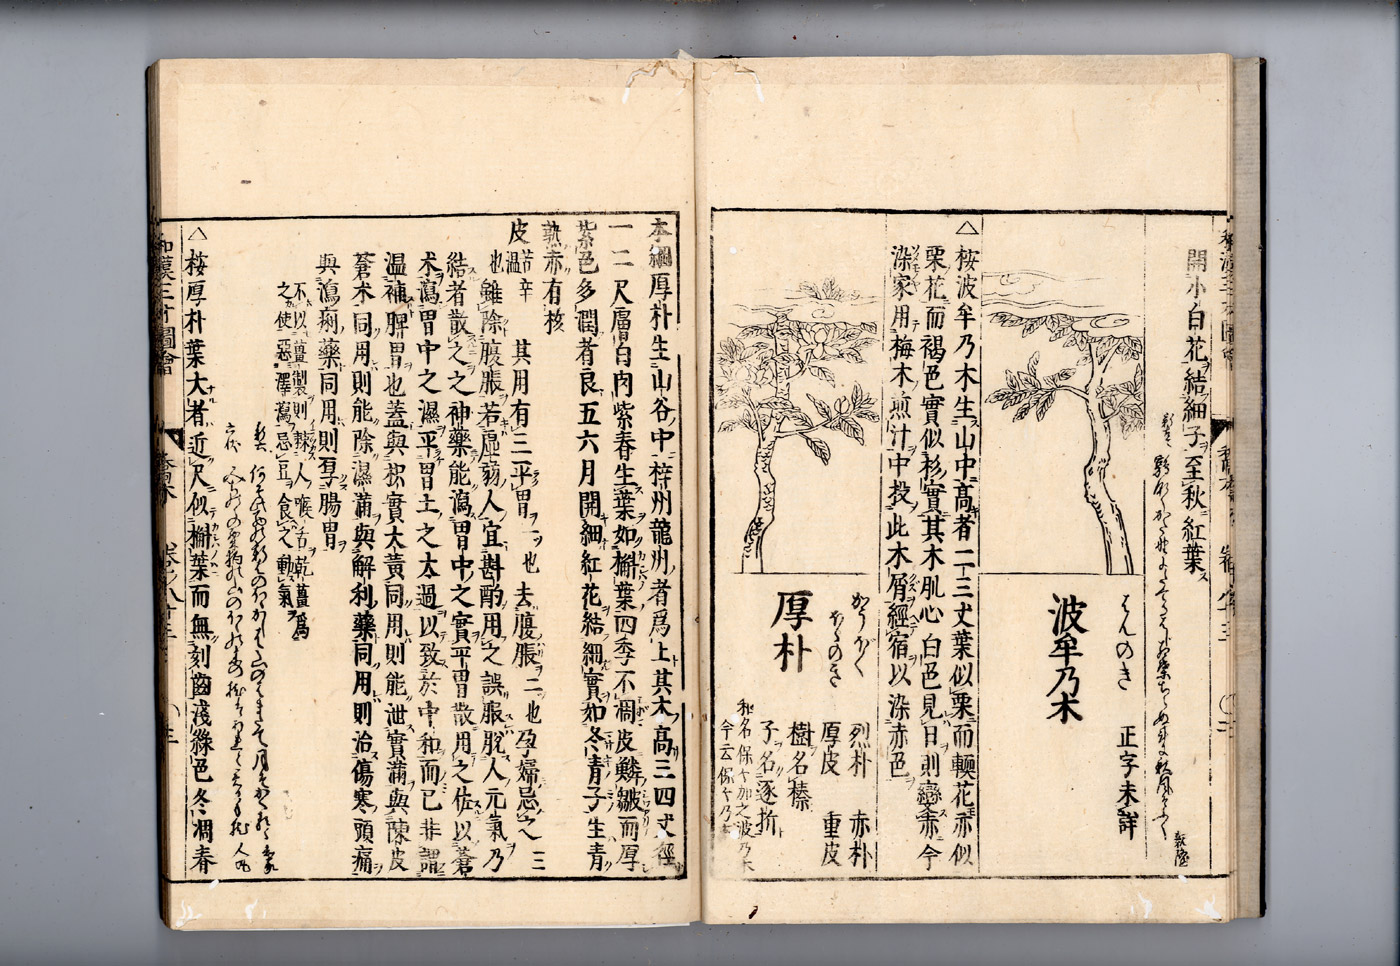 開小白花結細子至秋紅葉
はんのき 正字未詳
波牟乃木
△ 桉波牟乃木生山中高者二三丈葉似栗而輭花亦似
栗花而褐色實似杉實其木肌心白色見日則變赤今
染家用梅木煎汁中投此木屑經宿以染赤色
かうぼく
ほゝのき
厚朴
烈朴 赤朴
厚皮 重皮
樹名榛
子名逐折
和名保々加之波乃木
今云保々乃木
本綱厚朴生山谷中梓州龍州者爲上其木高三四丈徑
一二尺膚白肉紫春生葉如槲葉四季不凋皮鱗皺而厚
紫色多潤者良五六月開細紅花結細實如冬青子生青
熟赤有核
皮 苦辛溫 其用有三平胃一也去腹脹二也孕婦忌之三
也雖除腹脹若虛弱人宜斟酌用之誤服脫人元氣乃
結者散之之神藥能瀉胃中之實平胃散用之佐以蒼
术瀉胃中之濕平胃土之太過以致於中和而已非謂
溫補脾胃也蓋與枳實大黃同用則能泄實滿與陳皮
蒼术同用則能除濕滿與解利藥同用則治傷寒頭痛
與瀉痢藥同用則厚腸胃
不以薑製則棘人喉舌乾薑爲
之使惡澤瀉忌豆食之動氣
△ 桉厚朴葉大者近尺似槲葉而無刻齒淺綠色冬凋春
和漢三才圖會
喬木